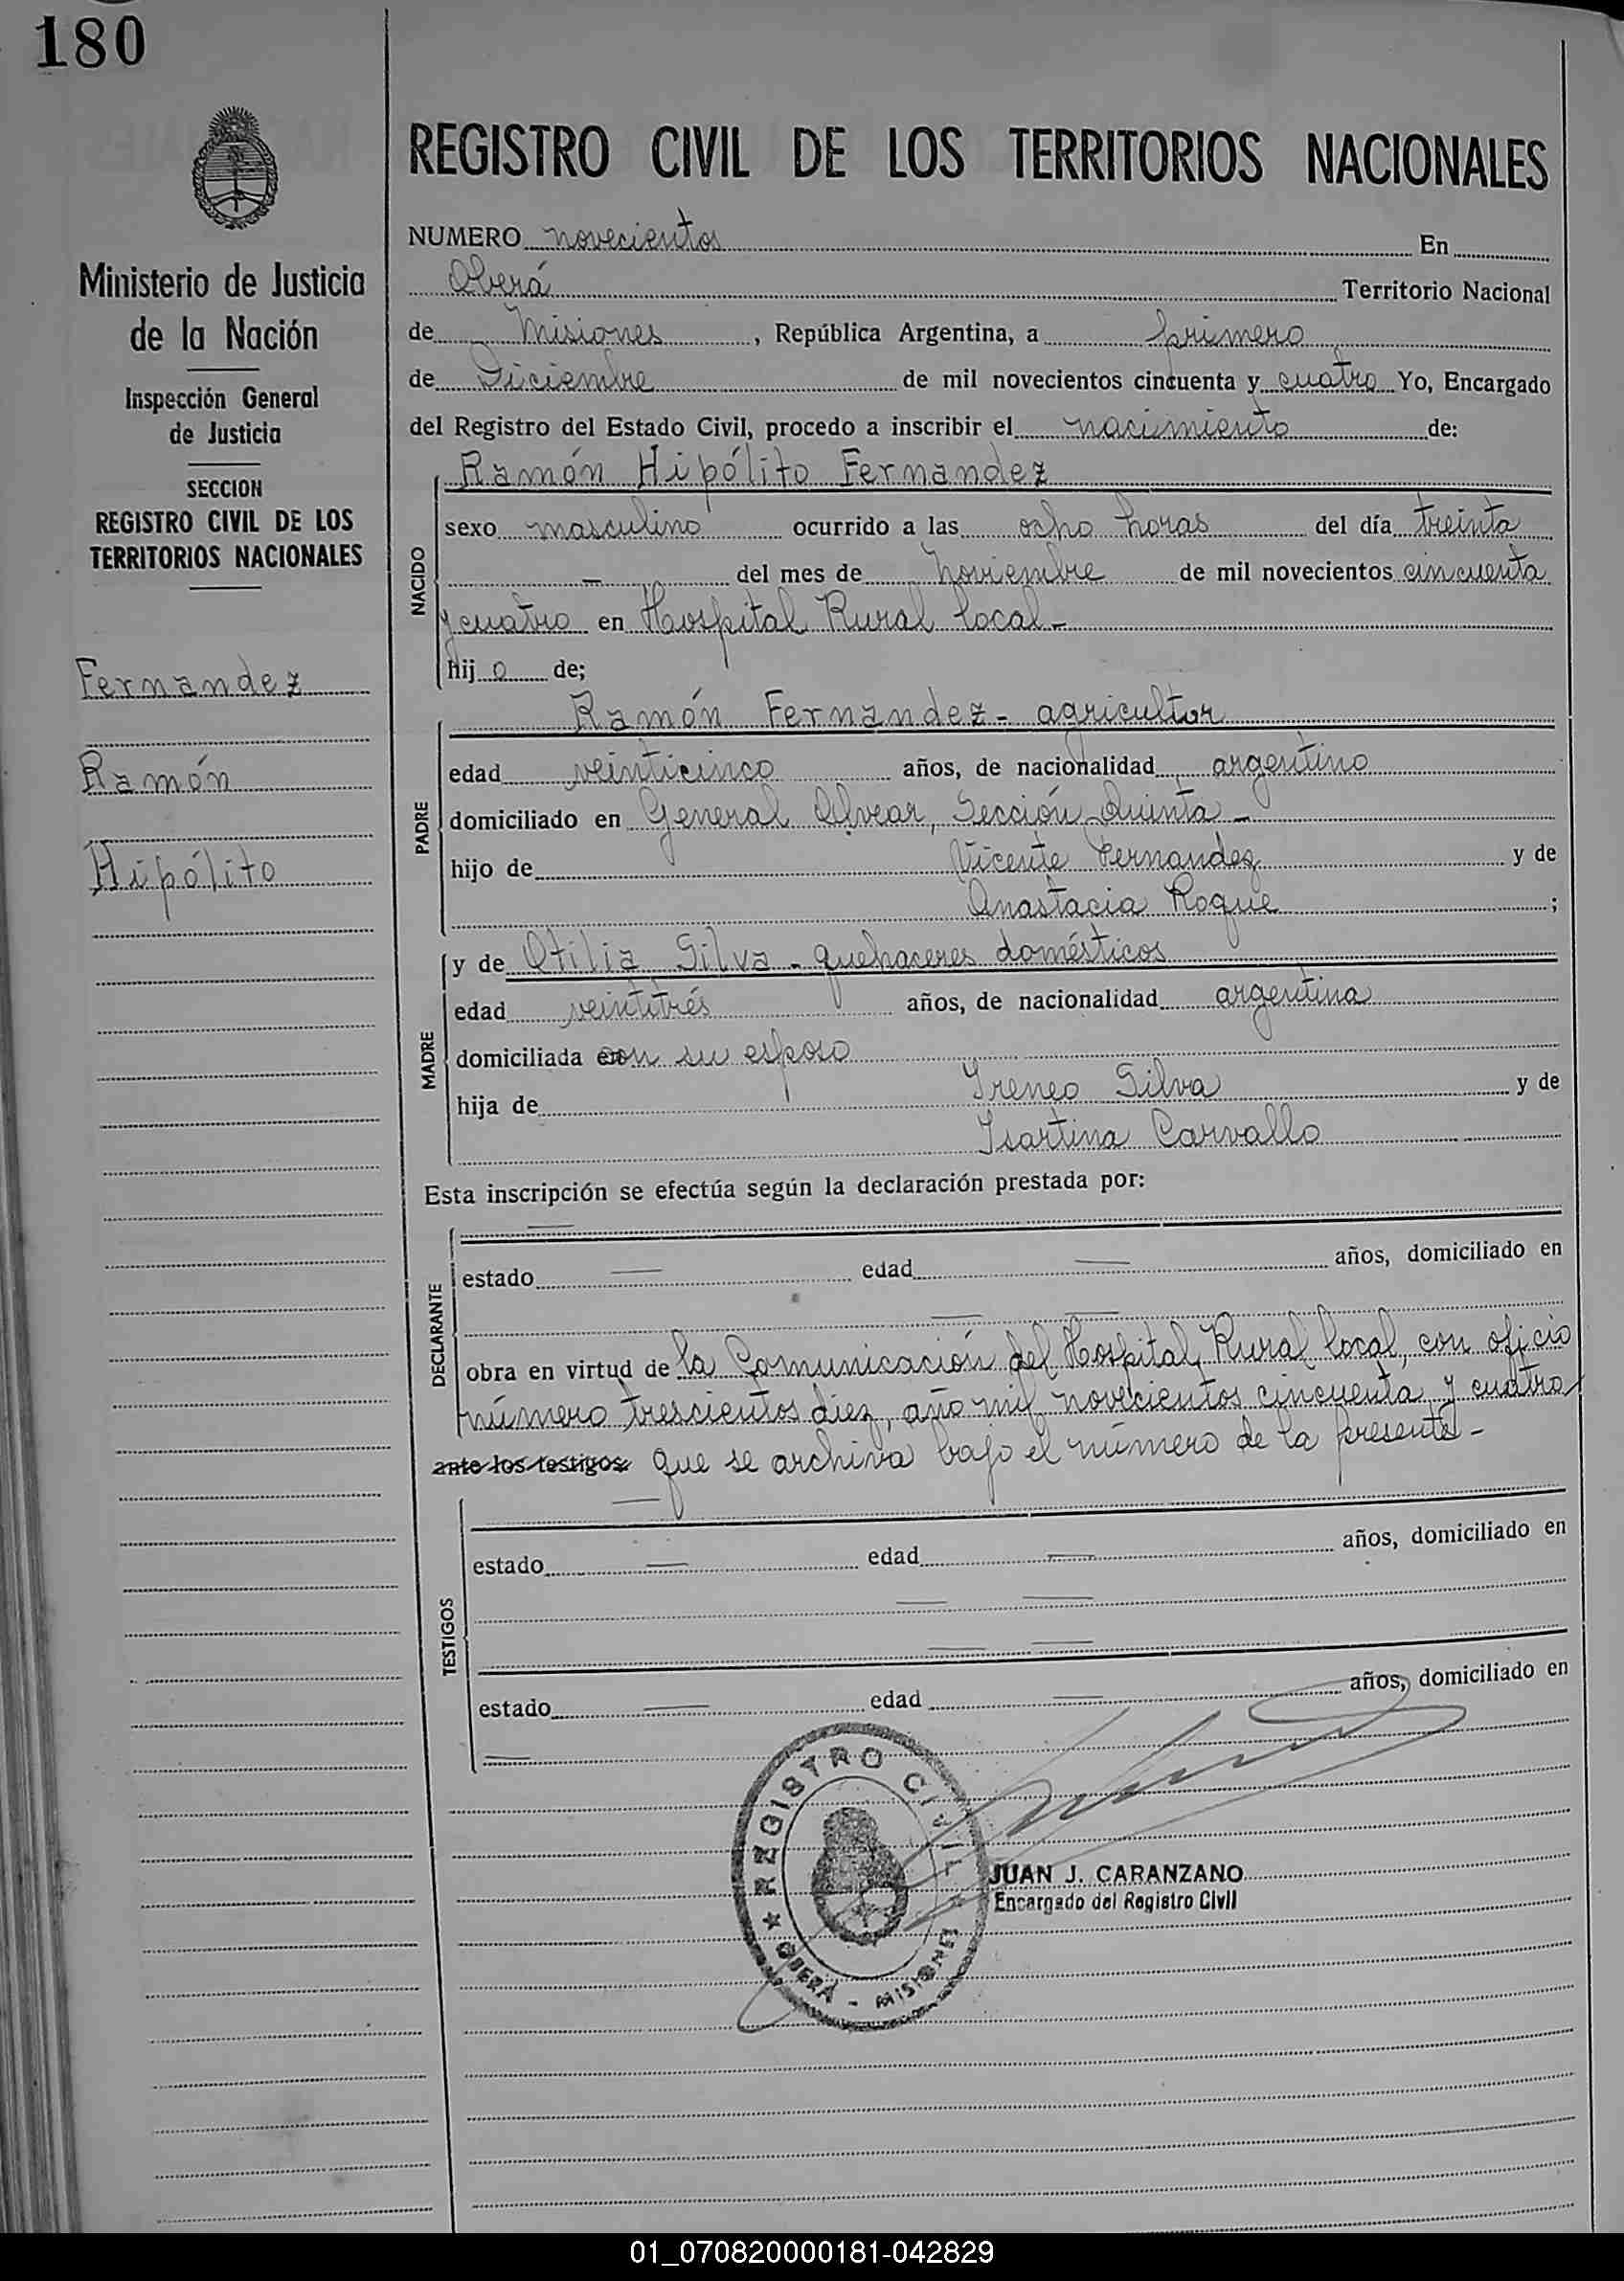 180
Ministerio de Justicia
de la Nación
Inspección General
de Justicia
SECCION
REGISTRO CIVIL DE LOS
TERRITORIOS NACIONALES
Fernandez
Ramón
Hipólito
REGISTRO CIVIL DE LOS TERRITORIOS NACIONALES
NUMERO novecientos En
Oberá Territorio Nacional
de Misiones, República Argentina, a primero
de Diciembre de mil novecientos cincuenta y cuatro Yo, Encargado
del Registro del Estado Civil, procedo a inscribir el nacimiento de:
NACIDO
Ramón Hipólito Fernandez
sexo masculino ocurrido a las ocho horas del día treinta
— del mes de Noviembre de mil novecientos cincuenta
y cuatro en Hospital Rural local-
hijo de;
PADRE
Ramón Fernandez - agricultor
edad veinticinco años, de nacionalidad argentino
domiciliado en General Alvear, Sección Quinta -
hijo de Vicente Fernandez y de
Anastacia Roque ;
MADRE
y de Otilia Silva - quehaceres domésticos
edad veintitrés años, de nacionalidad argentina
domiciliada con su esposo
hija de Ireneo Silva y de
Isartina Carvallo
Esta inscripción se efectúa según la declaración prestada por:
DECLARANTE
—
estado — edad — años, domiciliado en
— —
obra en virtud de la Comunicación del Hospital Rural local, con oficio
número trescientos diez, año mil novecientos cincuenta y cuatro
ante los testigos: que se archiva bajo el número de la presente-
TESTIGOS
—
estado — edad — años, domiciliado en
— —
— —
estado — edad — años, domiciliado en
—
REGISTRO CIVIL
OBERÁ - MISIONES
JUAN J. CARANZANO
Encargado del Registro Civil
01_070820000181-042829